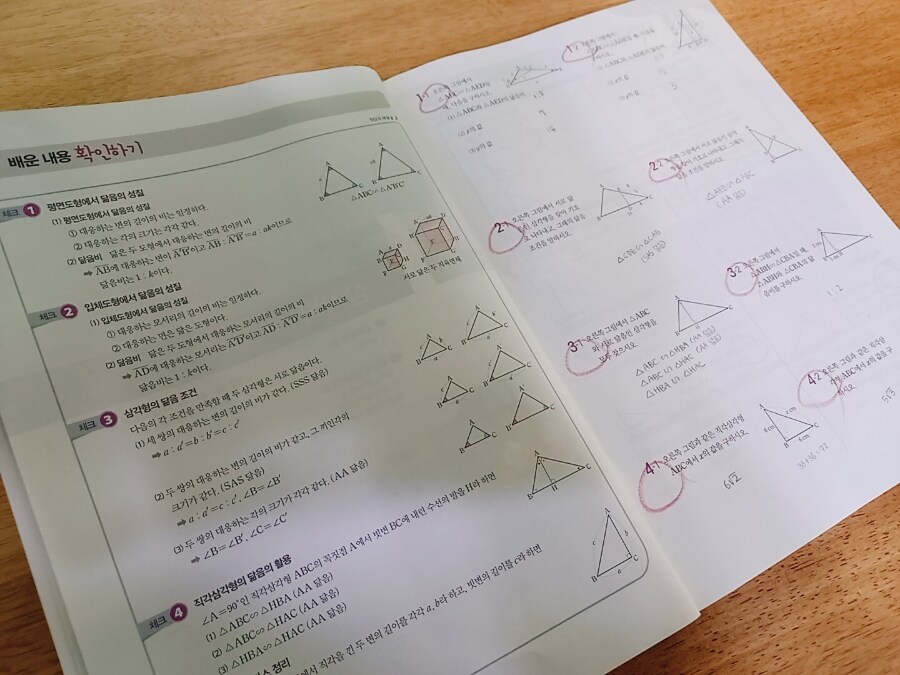 배운 내용 확인하기
체크 1 평면도형에서 닮음의 성질
(1) 평면도형에서 닮음의 성질
① 대응하는 변의 길이의 비는 일정하다.
② 대응하는 각의 크기는 각각 같다.
(2) 닮음비 닮은 두 도형에서 대응하는 변의 길이의 비
➡ AB에 대응하는 변이 A'B'이고 AB : A'B'=a : ak이므로
닮음비는 1 : k이다.
△ABC∽△A'B'C'
체크 2 입체도형에서 닮음의 성질
(1) 입체도형에서 닮음의 성질
① 대응하는 모서리의 길이의 비는 일정하다.
② 대응하는 면은 닮은 도형이다.
(2) 닮음비 닮은 두 도형에서 대응하는 모서리의 길이의 비
➡ AD에 대응하는 모서리는 A'D'이고 AD : A'D'=a : ak이므로
닮음비는 1 : k이다.
서로 닮은 두 직육면체
체크 3 삼각형의 닮음 조건
다음의 각 조건을 만족할 때 두 삼각형은 서로 닮음이다.
(1) 세 쌍의 대응하는 변의 길이의 비가 같다. (SSS 닮음)
➡ a : a'=b : b'=c : c'
(2) 두 쌍의 대응하는 변의 길이의 비가 같고, 그 끼인각의
크기가 같다. (SAS 닮음)
➡ a : a'=c : c', ∠B=∠B'
(3) 두 쌍의 대응하는 각의 크기가 각각 같다. (AA 닮음)
➡ ∠B=∠B', ∠C=∠C'
체크 4 직각삼각형의 닮음의 활용
∠A=90°인 직각삼각형 ABC의 꼭짓점 A에서 빗변 BC에 내린 수선의 발을 H라 하면
(1) △ABC∽△HBA (AA 닮음)
(2) △ABC∽△HAC (AA 닮음)
(3) △HBA∽△HAC (AA 닮음)
정리
에서 직각을 낀 두 변의 길이를 각각 a, b라 하고, 빗변의 길이를 c라 하면
1-1 오른쪽 그림에서
(1) △ABC와 △AED의 닮음비
1-2 오른쪽 그림에서
2-1 오른쪽 그림에서 서로 닮
은 삼각형을 찾아 기호
로 나타내고, 그때의 닮음
조건을 말하시오.
2-2 오른쪽 그림에서 서로 닮은 삼각
3-1 오른쪽 그림에서 △ABC
와 서로 닮음인 삼각형을
모두 찾으시오.
△ABC ∽ △HBA (AA 닮음)
△ABC ∽ △HAC (AA 닮음)
△HBA ∽ △HAC
3-2 오른쪽 그림에서
△ABH∽△CBA일 때,
△ABH와 △CBA의 닮
음비를 구하시오.
1 : 2
4-1 오른쪽 그림과 같은 직각삼각형
ABC에서 x의 값을 구하시오.
6√2
36+36=72
4-2 오른쪽 그림과 같은 직각삼
각형 ABC에서 x의 값을 구
하시오.
5√3